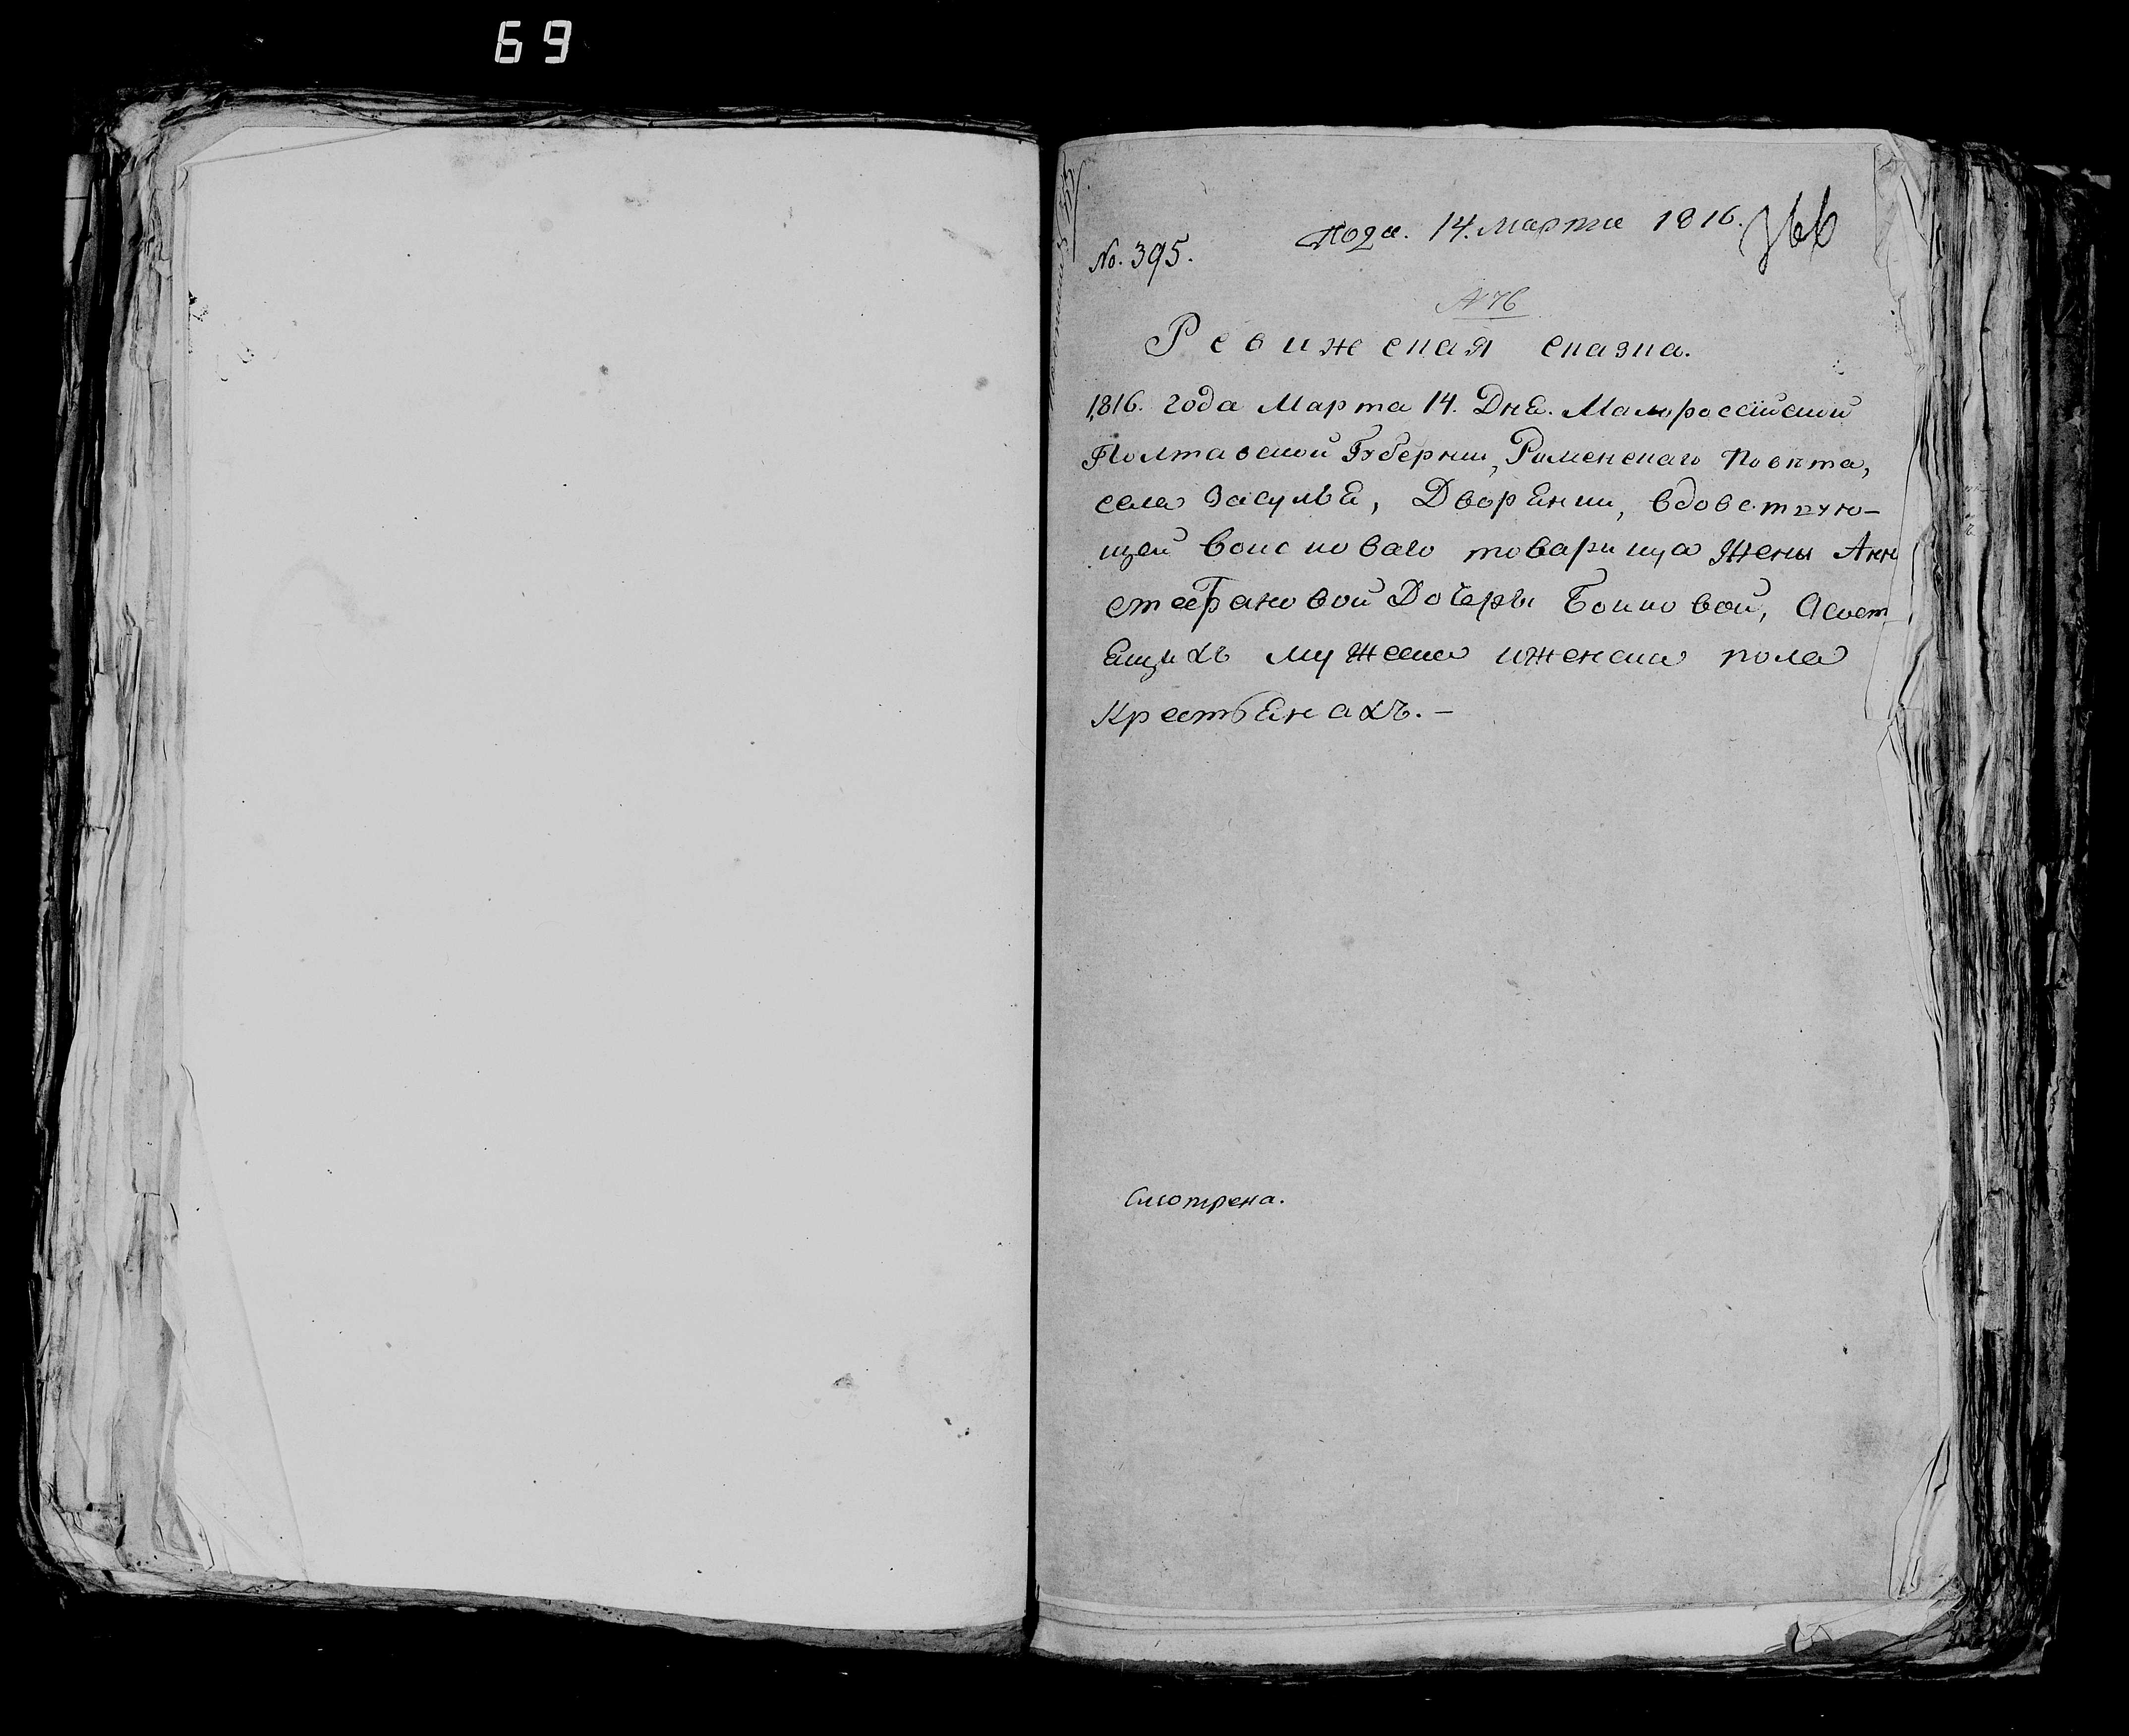 69
No. 395.
Пода. 14. марта 1816.
366
№ 76
Ревижская сказка.
1816. года Марта 14. Дня. Малороссійской
Полтавской Губерніи, Роменскаго Повѣта,
села Засулья, Дворянки, вдовствую-
щей войсковаго товарища Жены Анн
стефановой Дочеры Бойковой, Осост
ящихъ мужеска иженска пола
Крестьянахъ. –
Смотрена.